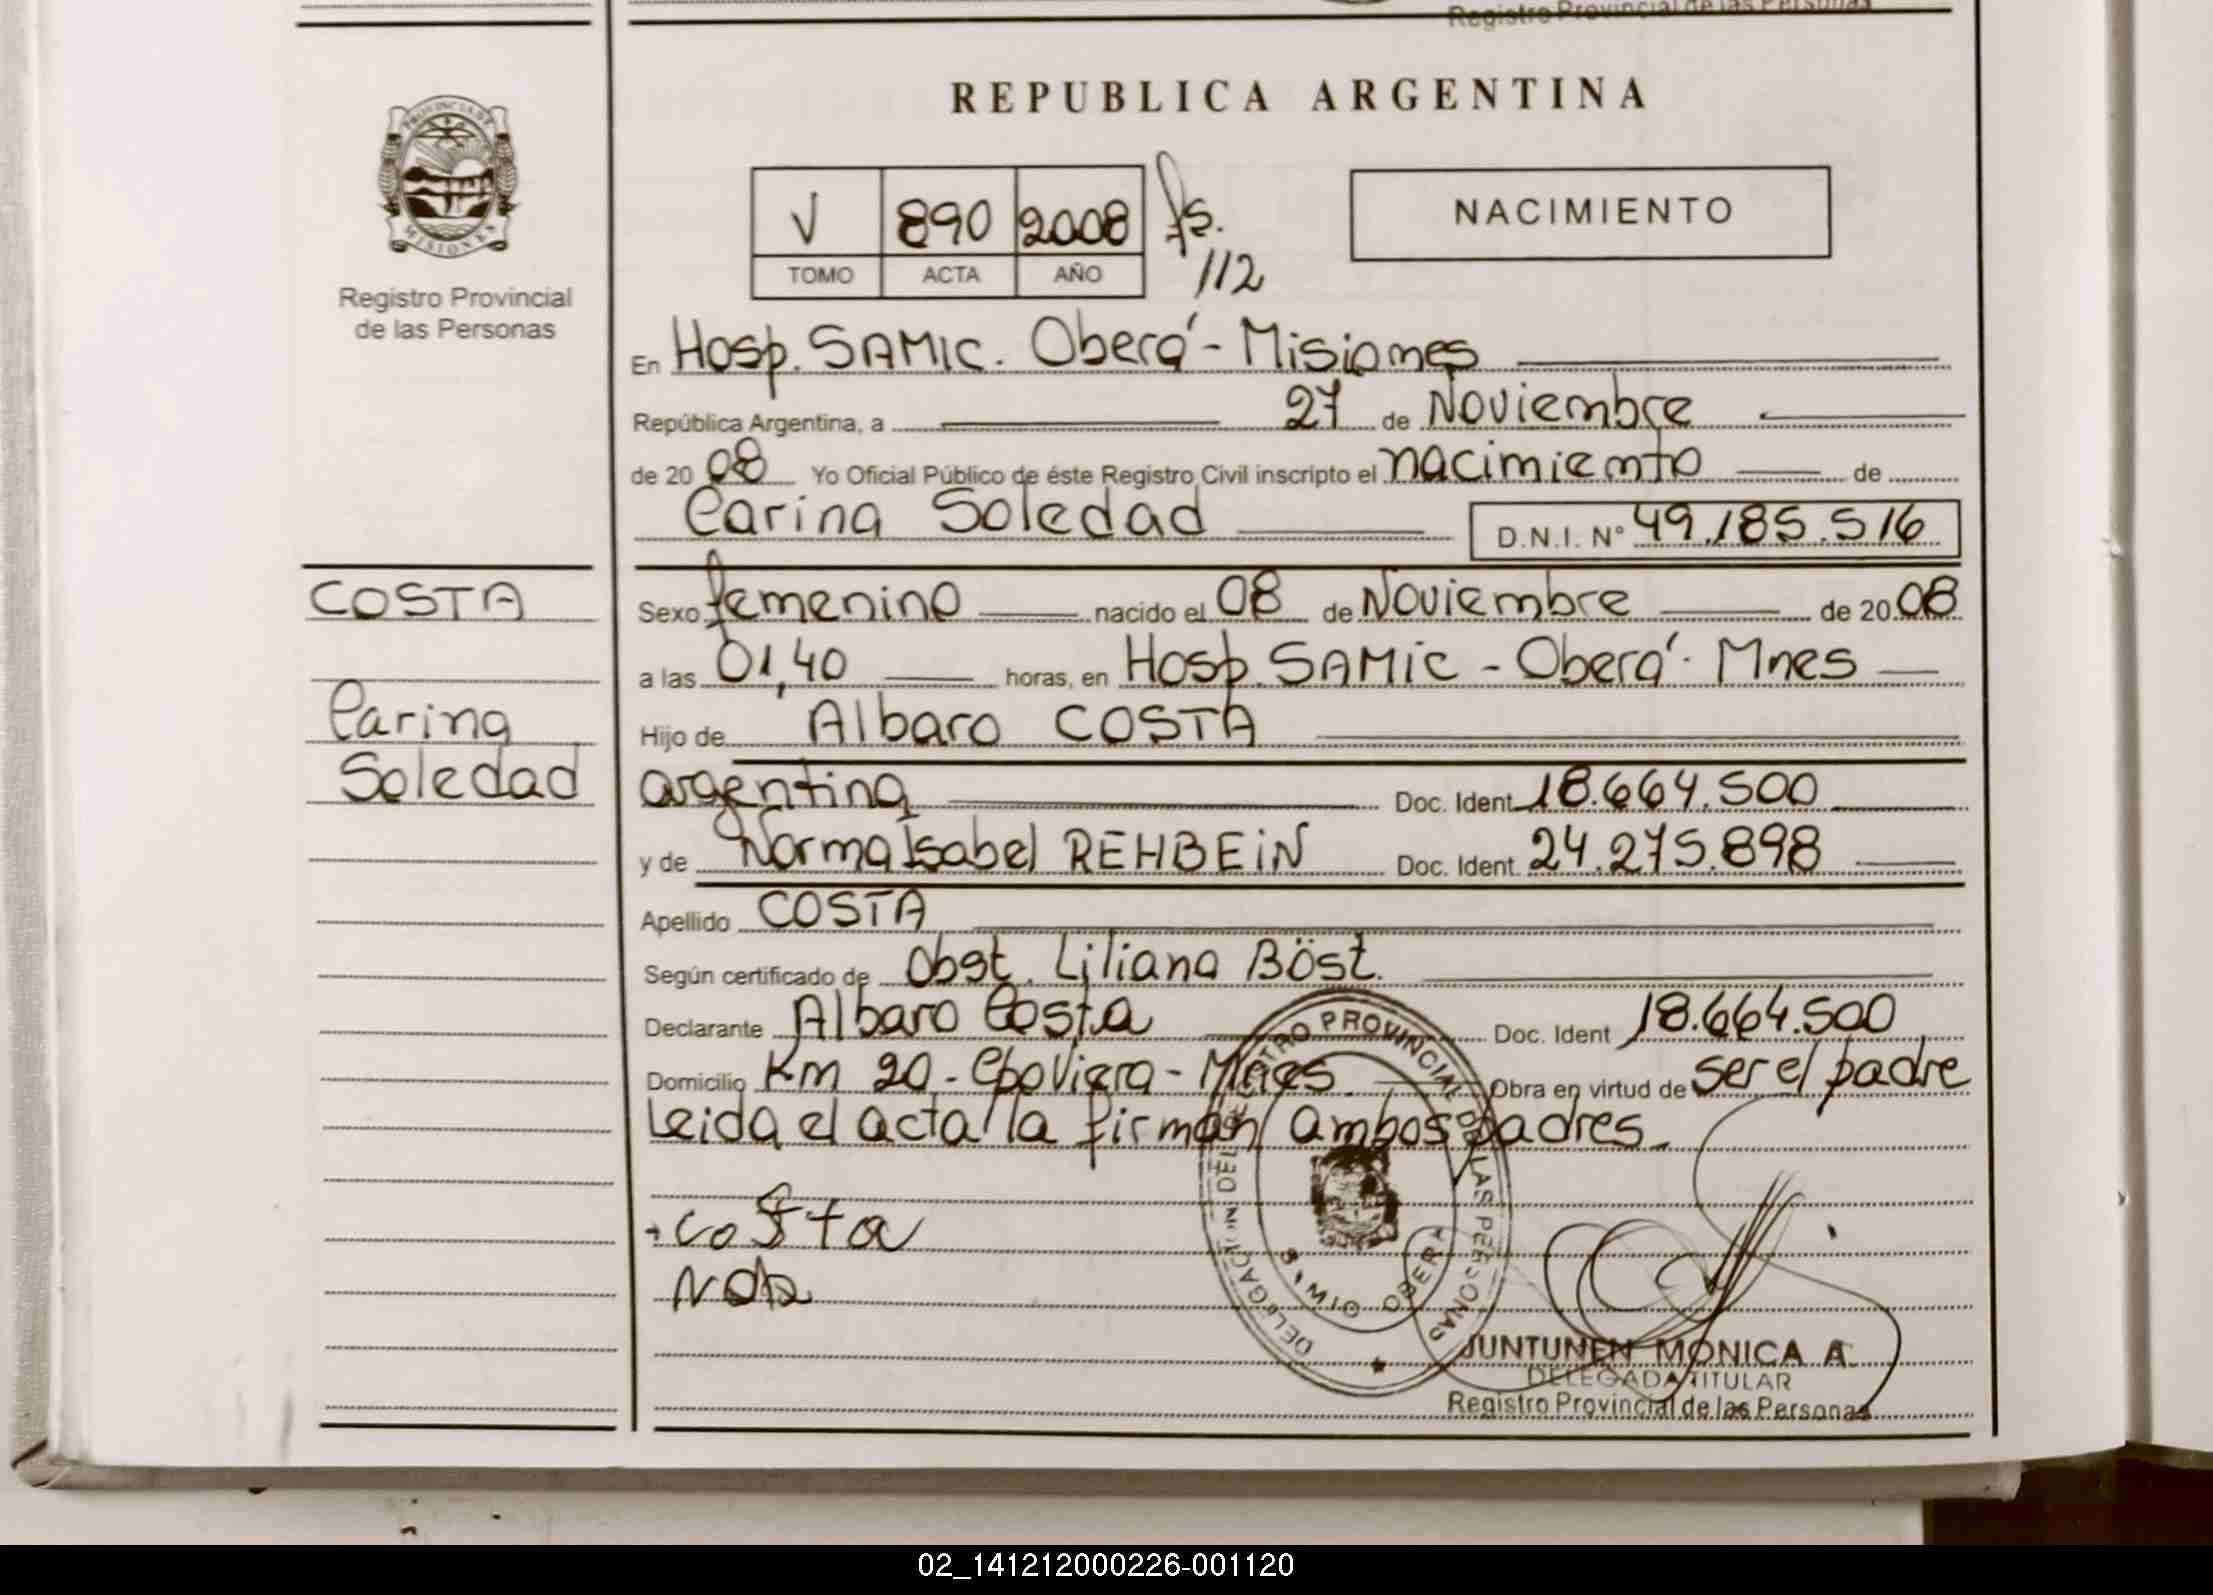 Registro Provincial de las Personas
PROVINCIA DE
MISIONES
Registro Provincial
de las Personas
COSTA
Carina
Soledad
REPUBLICA ARGENTINA
V 890 2008 fs.
TOMO ACTA AÑO 112
NACIMIENTO
En Hosp. SAMIC. Oberá - Misiones
República Argentina, a 27 de Noviembre
de 20 08 Yo Oficial Público de éste Registro Civil inscripto el nacimiento de
Carina Soledad D.N.I. N° 49.185.516
Sexo femenino nacido el 08 de Noviembre de 20 08
a las 01,40 horas, en Hosp. SAMIC - Oberá - Mnes
Hijo de Albaro COSTA
argentina Doc. Ident 18.664.500
y de Norma Isabel REHBEIN Doc. Ident. 24.275.898
Apellido COSTA
Según certificado de Obst. Liliana Böst.
Declarante Albaro Costa Doc. Ident 18.664.500
Domicilio Km 20 - Mnes Obra en virtud de ser el padre
Leida el acta la firman ambos padres.
Costa
DELEGACION DEL REGISTRO PROVINCIAL DE LAS PERSONAS
OBERA
JUNTUNEN MONICA A.
DELEGADA TITULAR
Registro Provincial de las Personas
02_141212000226-001120